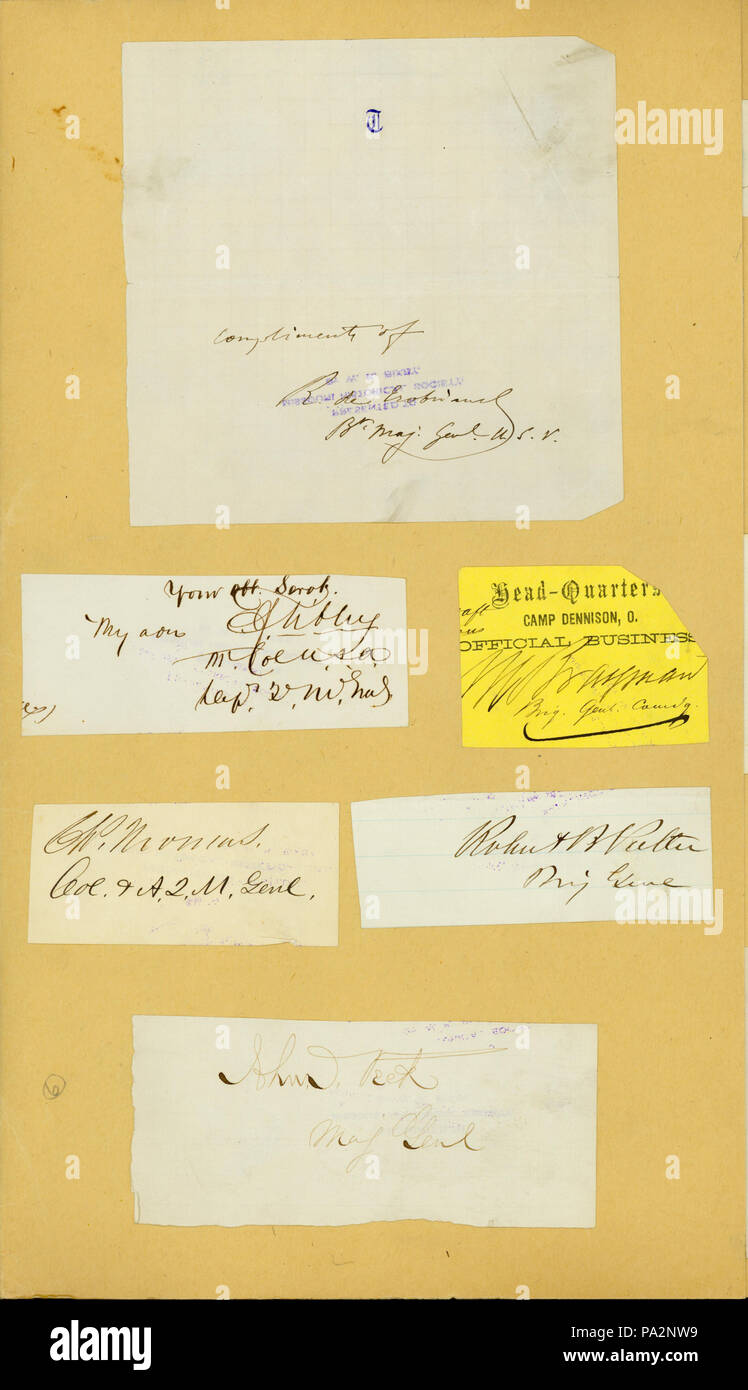 T
compliments of
R. de Trobriand
Bt. Maj. Genl. U.S.V.
PRESENTED TO
MISSOURI HISTORICAL SOCIETY
Your obt. Servt.
My son E S Sibley
Col U.S.A.
Dep. Q. M. Genl
Head-Quarters
CAMP DENNISON, O.
OFFICIAL BUSINESS
Brayman
Brig. Genl. Comdg.
Chs. Thomas.
Col. & A. Q. M. Genl.
Robert B Potter
Brig Genl
John J. Peck
Maj Genl
6
alamy
Image ID: PA2NW9
www.alamy.com